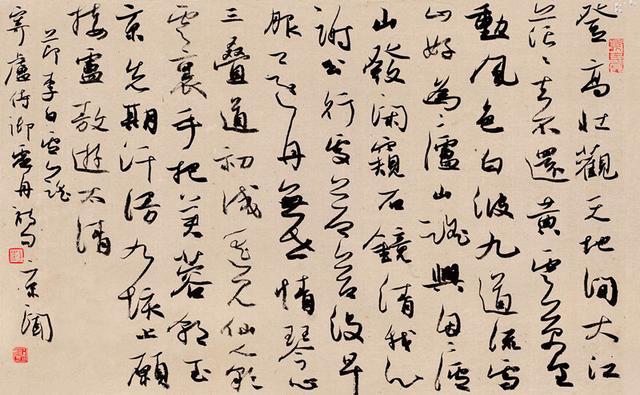 登高壯觀天地間大江
茫〻去不還黃雲萬里
動風色白波九道流雪
山好為〻廬山謠興因〻廬
山發閑窺石鏡清我心
謝公行處蒼苔沒早
服還丹無世情琴心
三疊道初成遙見仙人綵
雲裏手把芙蓉朝玉
京先期汗漫九垓上願
接盧敖遊太清
節李白廬山謠
寄盧侍御虛舟